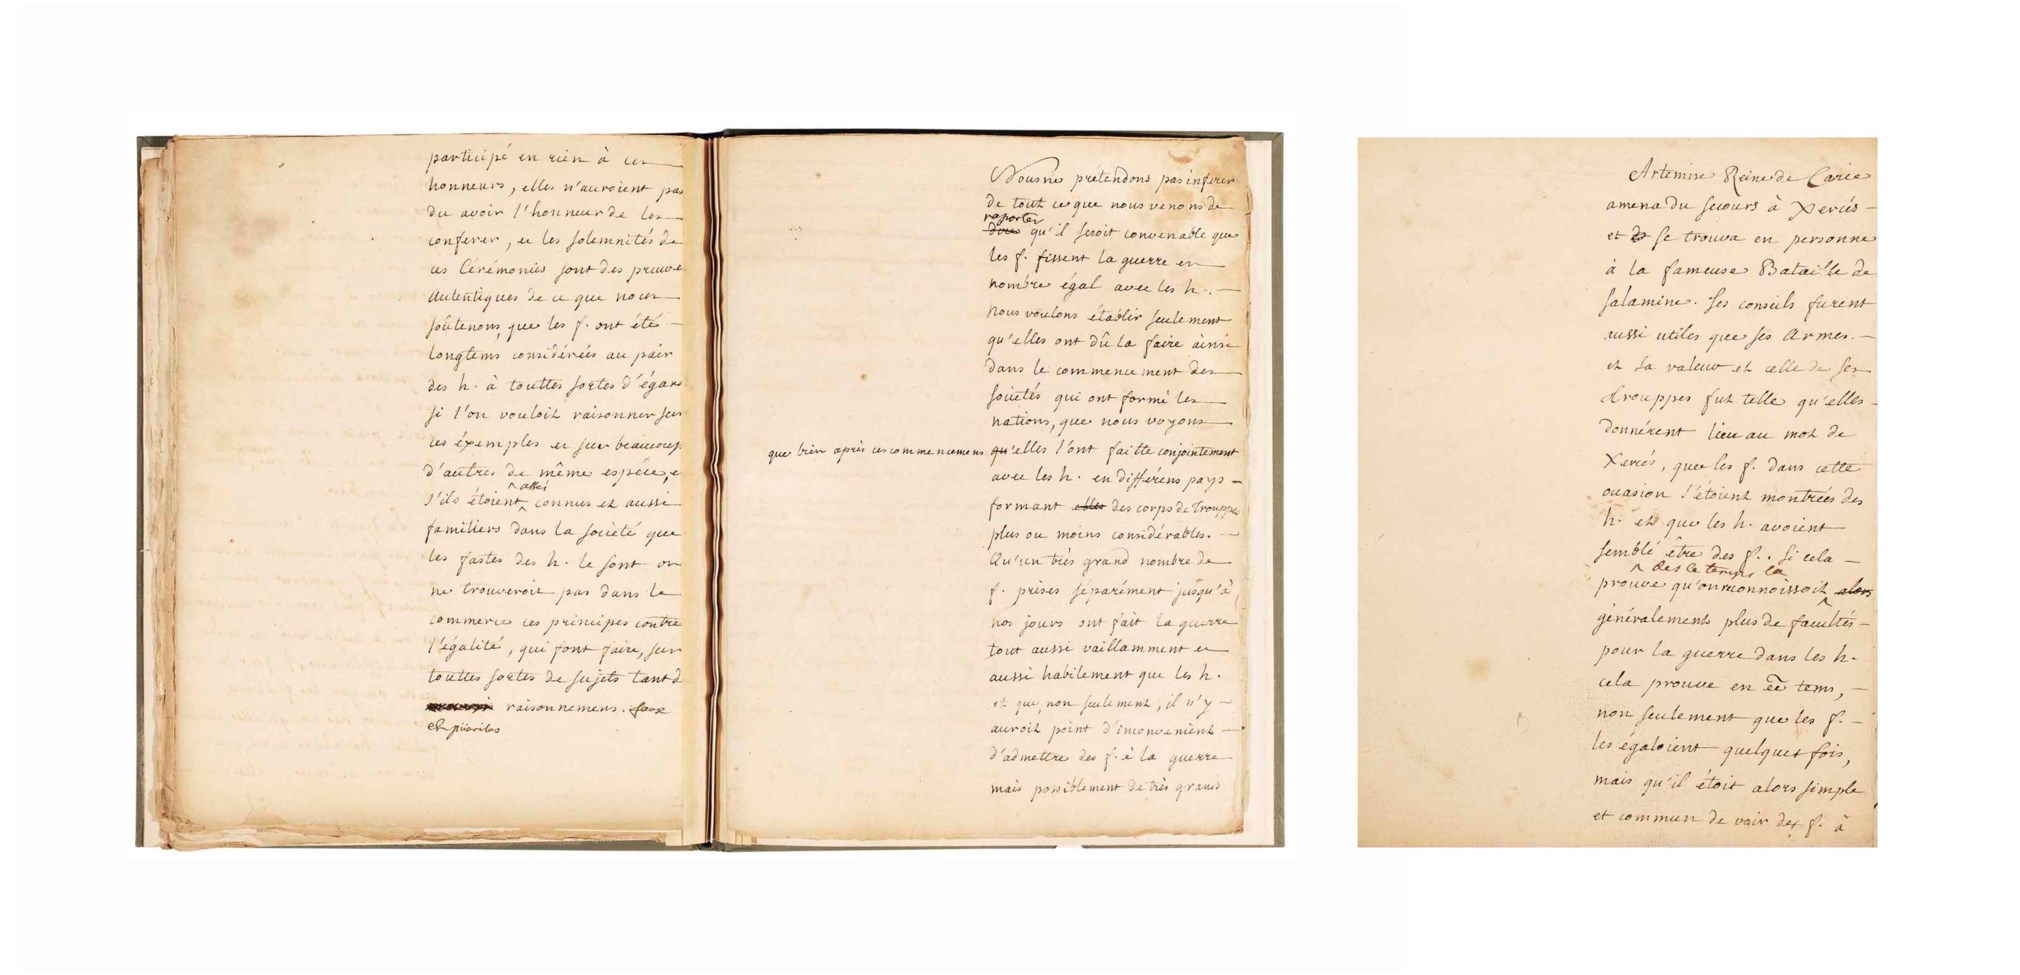 participé en rien à ces
honneurs, elles n'auroient pas
du avoir l'honneur de les
conferer, et les solemnités de
ces Cérémonies sont des preuve
Autentiques de ce que nous
soûtenons, que les f. ont été
longtems considérées au pair
des h. à touttes sortes d'égar
si l'on vouloit raisonner sur
ces éxemples et sur beaucoup
d'autres de même espéce, e
assés
s'ils étoient connus et aussi
familiers dans la societé que
les fastes des h. le sont on
ne trouveroit pas dans le
commerce ces principes contre
l'égalité, qui font faire, sur
touttes sortes de sujets tant d
raisonnemens. faux
et puériles
Nous ne prétendons pas inferer
de tout ce que nous venons de
raporter
dire qu'il seroit convenable que
les f. fissent la guerre en
nombre égal avec les h.
nous voulons établir seulement
qu'elles ont dû la faire ainsi
dans le commencement des
societés qui ont formé les
nations, que nous voyons
que bien après ces commencemens qu'elles l'ont faitte conjointement
avec les h. en différens pays
formant elles des corps de Trouppes
plus ou moins considérables.
Qu'un très grand nombre de
f. prises séparément jusqu'à
nos jours ont fait la guerre
tout aussi vaillamment et
aussi habilement que les h.
et que, non seulement, il n'y
auroit point d'inconvenient
d'admettre des f. à la guerre
mais possiblement de très grands
Artemise Reine de Carie
amena du secours à Xercés
et se trouva en personne
à la fameuse Bataille de
Salamine. Ses conseils furent
aussi utiles que ses Armes.
et sa valeur et celle de ses
trouppes fut telle qu'elles
donnérent lieu au mot de
Xercés, que les f. dans cette
ocasion s'étoient montrées des
h. et que les h. avoient
semblé être des f. Si cela
des ce tems la
prouve qu'on reconnoissoit alors
généralement plus de facultés
pour la guerre dans les h.
cela prouve en mē tems,
non seulement que les f.
les égaloient quelques fois,
mais qu'il étoit alors simple
et commun de voir des f. à